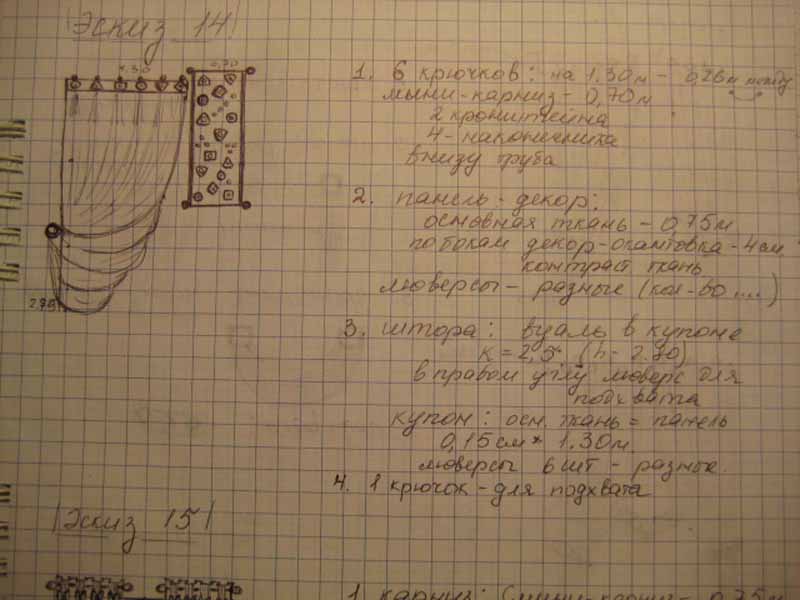 Эскиз 14
1.30
0,70
2.75
1. 6 крючков: на 1.30м - 0,26м между
мыни-карниз - 0,70м
2 кронштейна
4 - наконечника
внизу труба
2. панель - декор:
основная ткань - 0,75м
по бокам декор-окантовка - 4см
контраст ткань
люверсы - разные (кол-во ....)
3. штора: вуаль в купоне
к = 2,5 (h - 2.70)
в правом углу люверс для
подхвата
купон: осн. ткань = панель
0,15см * 1.30м.
люверсы 6 шт - разные.
4. 1 крючок - для подхвата
Эскиз 15
1. карниз: